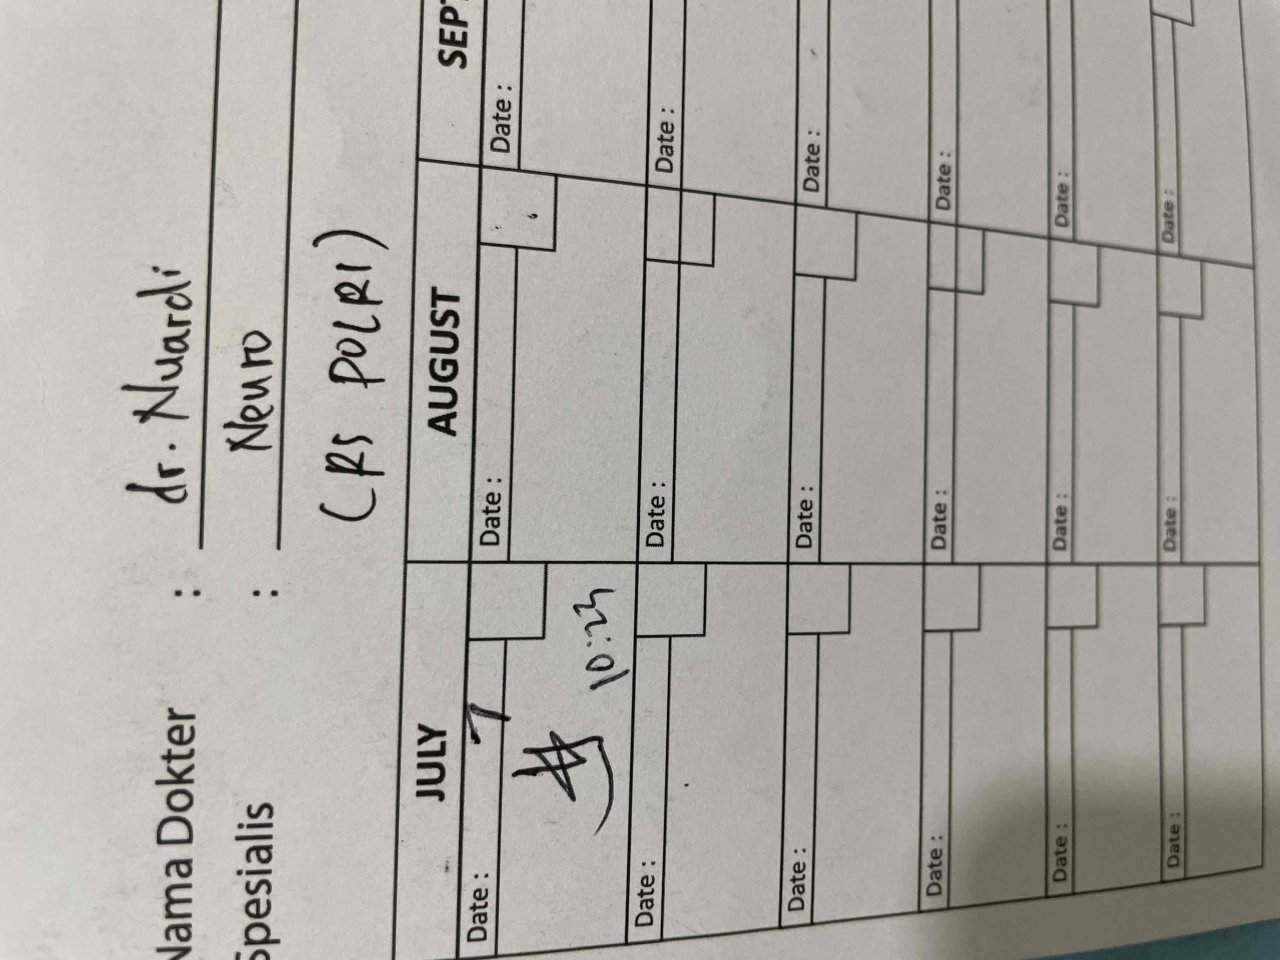 Nama Dokter : dr. Nuardi
Spesialis : Neuro
(RS POLRI)
JULY AUGUST SEPT
Date : 7 Date : Date :
10:23
Date : Date : Date :
Date : Date : Date :
Date : Date : Date :
Date : Date : Date :
Date : Date : Date :